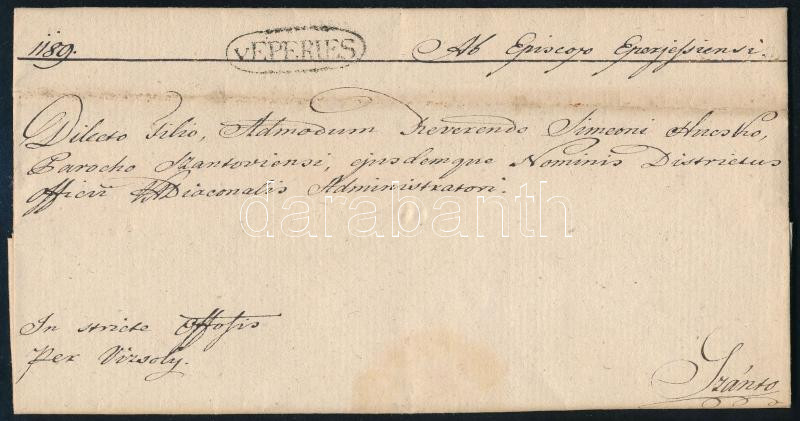 1189. V.EPERIES Ab Episcopo Eperjessiensi.
Dilecto Filio, Admodum Reverendo Simeoni Hnesko,
Parocho Szantoviensi, ejusdemque Nominis Districtus
officii Diaconalis Administratori.
darabanth
In stricte
Per Vizsoly.
Szánto